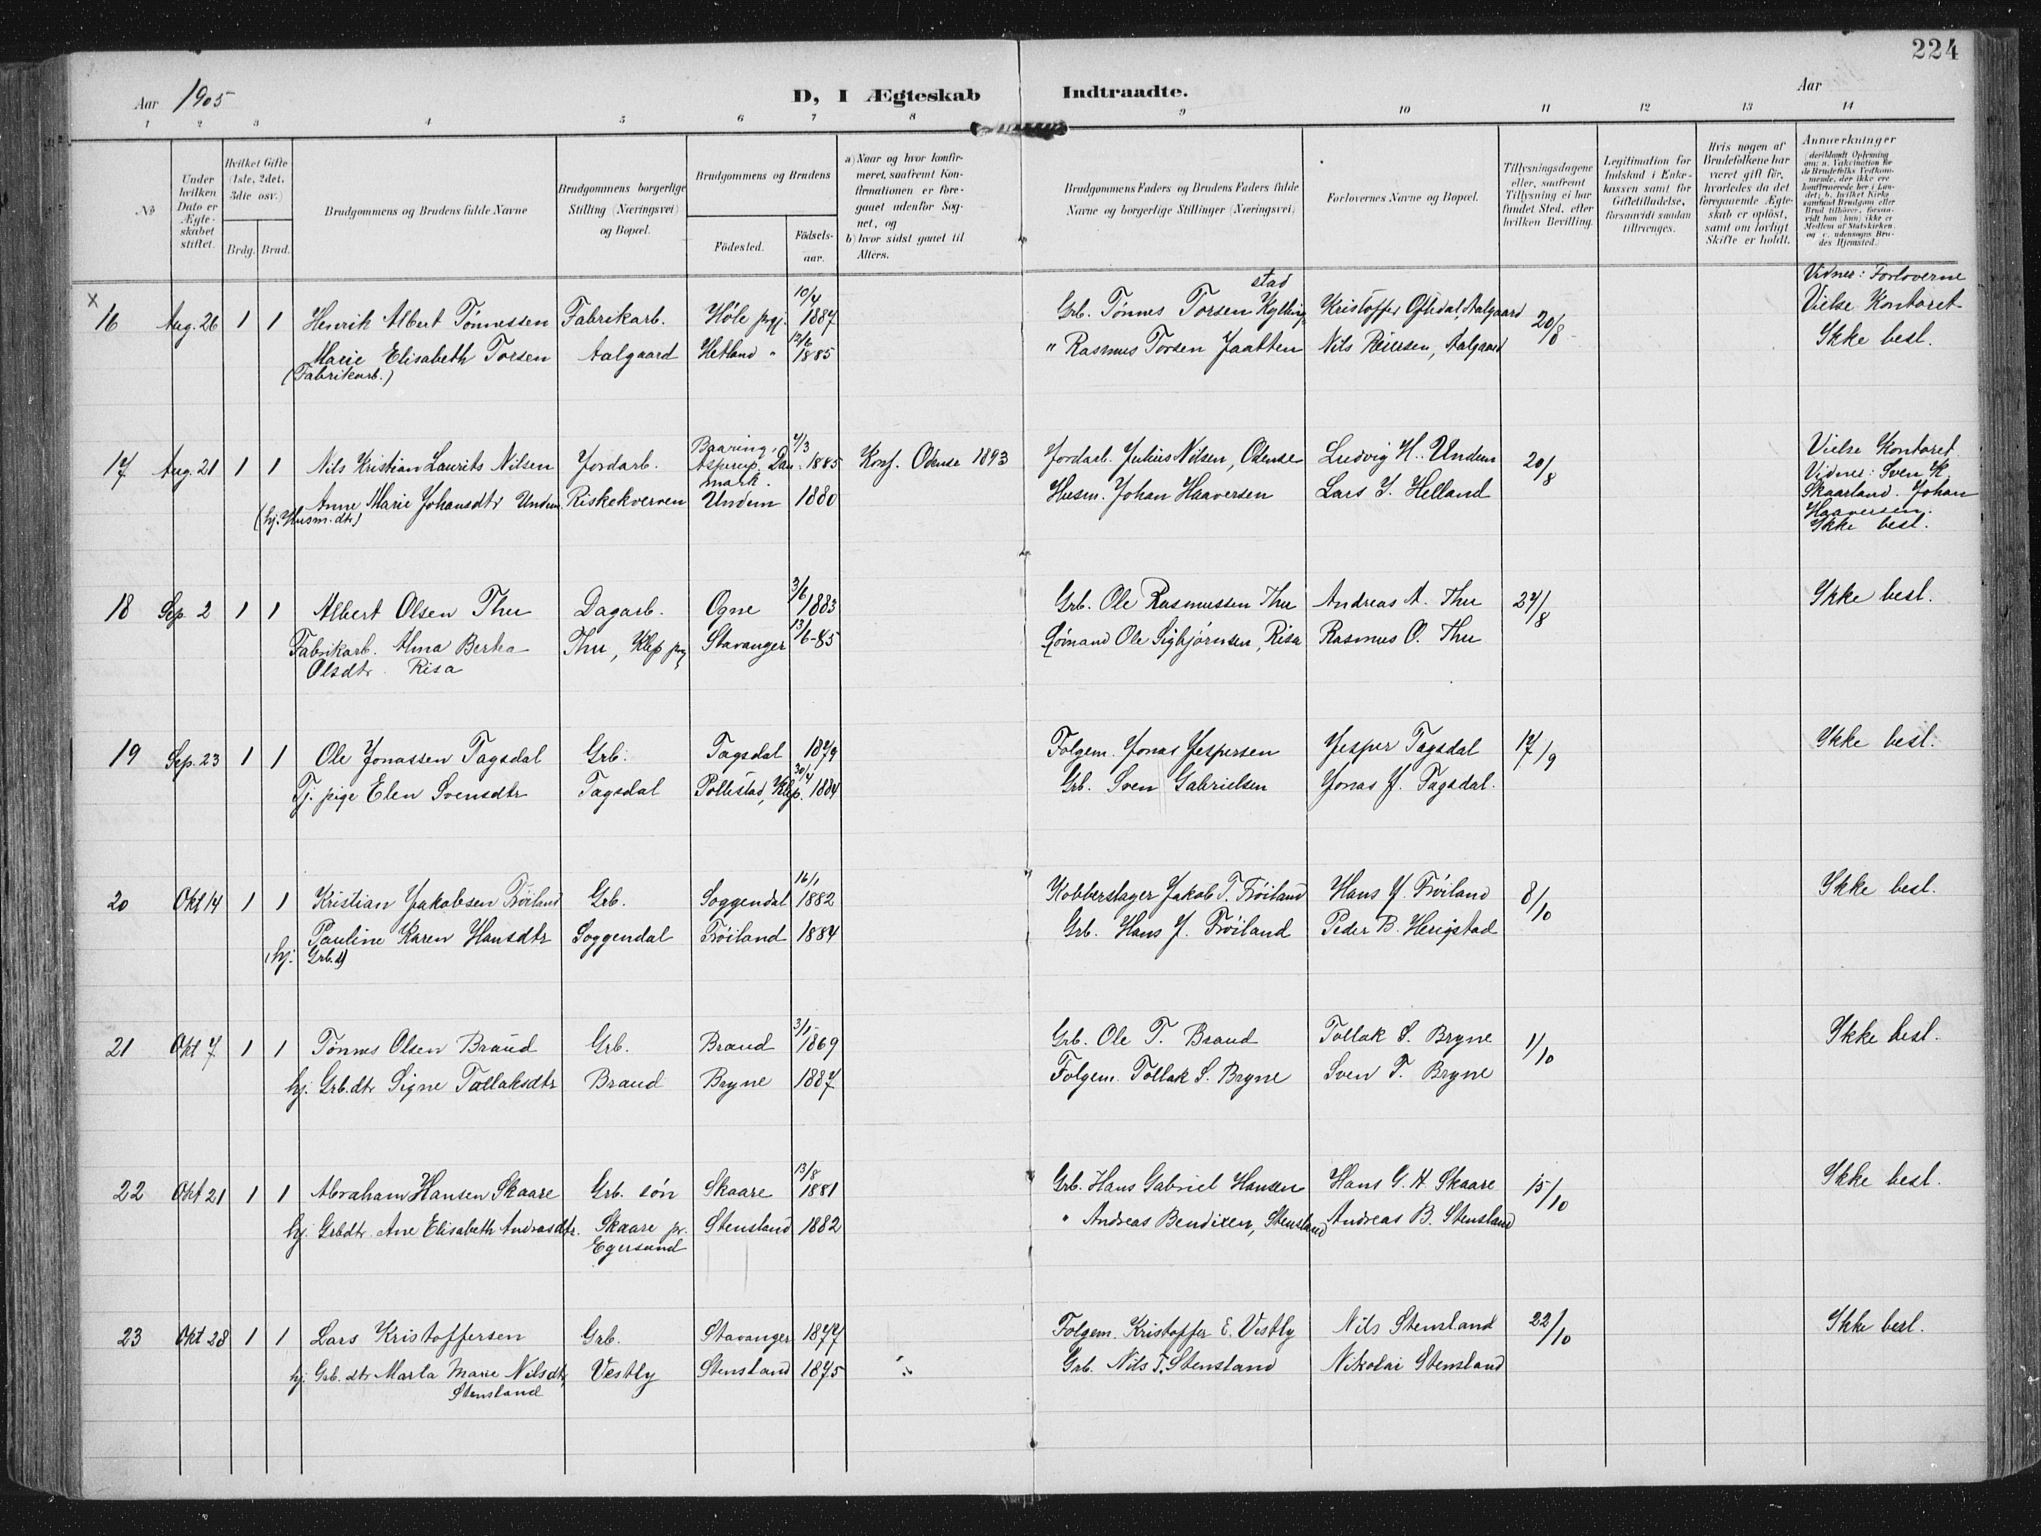 224
Aar 1905 D, I Ægteskab Indtraadte. Aar
1 2 3 4 5 6 7 8 9 10 11 12 13 14
No
Under hvilken Dato er Ægteskabet stiftet.
Hvilket Gifte (1ste, 2det, 3die osv.)
Brdg. Brud.
Brudgommens og Brudens fulde Navne
Brudgommens borgerlige Stilling (Næringsvei) og Bopæl.
Brudgommens og Brudens
Fødested.
Fødselsaar.
a) Naar og hvor konfirmeret, saafremt Konfirmationen er foregaaet udenfor Sognet, og
b) hvor sidst gaaet til Alters.
Brudgommens Faders og Brudens Faders fulde Navne og borgerlige Stillinger (Næringsvei)
Forlovernes Navne og Bopæl.
Tillysningsdagene eller, saafremt Tillysning ei har fundet Sted, efter hvilken Bevilling.
Legitimation for Indskud i Enkekassen samt for Giftetilladelse, forsaavidt saadan tiltrænges.
Hvis nogen af Brudefolkene har været gift før, hvorledes da det foregaaende Ægteskab er opløst, samt om lovligt Skifte er holdt.
Anmerkninger (deriblandt Oplysning om: a. Vakcination for de Brudefolks Vedkommende, der ikke ere konfirmerede her i Landet; b. hvilket Kirkesamfund Brudgom eller Brud tilhører, forsaavidt han (hun) ikke er Medlem af Statskirken, og c. udensogns Brudes Hjemsted.
x stad Vidner: Forloverne
16 Aug. 26 1 1 Henrik Albert Tønnessen Fabrikarb. Høle prgj. 10/4 1887 Grb. Tønnes Torsen Kylling Kristoffer Oftedal, Aalgaard 20/8 Vielse Kontoret
Marie Elisabeth Torsen Aalgaard Hetland " 12/6 1885 " Rasmus Torsen Jaatten Nils Reiersen, Aalgaard Ikke besl.
(Fabrikarb.)
17 Aug. 21 1 1 Nils Kristian Laurits Nilsen Jordarb. Baaring, Asperup, Danmark. 4/3 1885 Konf. Odense 1893 Jordarb. Julius Nilsen, Odense Ludvig H. Undem 20/8 Vielse Kontoret
Anne Marie Johansdtr Undem Riskekverven Undem 1880 Husm. Johan Haaversen Lars J. Helland Vidner: Sven K. Skaarland. Johan Haaversen.
(hj. Husm. dtr) Ikke besl.
18 Sep. 2 1 1 Albert Olsen Thu Dagarb. Ogne 3/6 1883 Grb. Ole Rasmussen Thu Andreas A. Thu 27/8 Ikke besl.
Fabrikarb. Alma Bertea Thu, Klep prg Stavanger 13/6-85 Sømand Ole Sigbjørnsen, Risa Rasmus O. Thu
Olsdtr. Risa
19 Sep. 23 1 1 Ole Jonassen Tagsdal Grb. Tagsdal 1879 Folgem. Jonas Jespersen Jesper Tagsdal 17/9 Ikke besl.
Tj. pige Elen Svensdtr Tagsdal Pollestad, Klep. 30/4 1884 Grb. Sven Gabrielsen Jonas J. Tagsdal.
20 Okt 14 1 1 Kristian Jakobsen Frøiland Grb. Soggendal 16/1 1882 Kobberslager Jakob T. Frøiland Hans J. Frøiland 8/10 Ikke besl.
Pauline Karen Hansdtr Soggendal Frøiland 1884 Grb. Hans J. Frøiland Peder B. Herigstad
(hj. Grb.d)
21 Okt 7 1 1 Tønnes Olsen Braud Grb. Braud 3/1 1869 Grb. Ole T. Braud Tollak S. Bryne 1/10 Ikke besl.
hj. Grb.dtr Signe Tollaksdtr Braud Bryne 1887 Folgem. Tollak S. Bryne Sven T. Bryne
22 Okt 21 1 1 Abraham Hansen Skaare Grb. søn Skaare 13/8 1881 Grb. Hans Gabriel Hansen Hans G. A. Skaare 15/10 Ikke besl.
hj. Grbdtr. Ane Elisabeth Andrasdtr. Skaare pr. Stensland 1882 " Andreas Bendixen, Stensland Andreas B. Stensland
Egersund
23 Okt 28 1 1 Lars Kristoffersen Grb. Stavanger 1877 Folgem. Kristoffer E. Vestly Nils Stensland 22/10 Ikke besl.
hj. Grb. dtr Marta Marie Nilsdtr, Vestly Stensland 1875 Grb. Nils T. Stensland Nikolai Stensland
Stensland